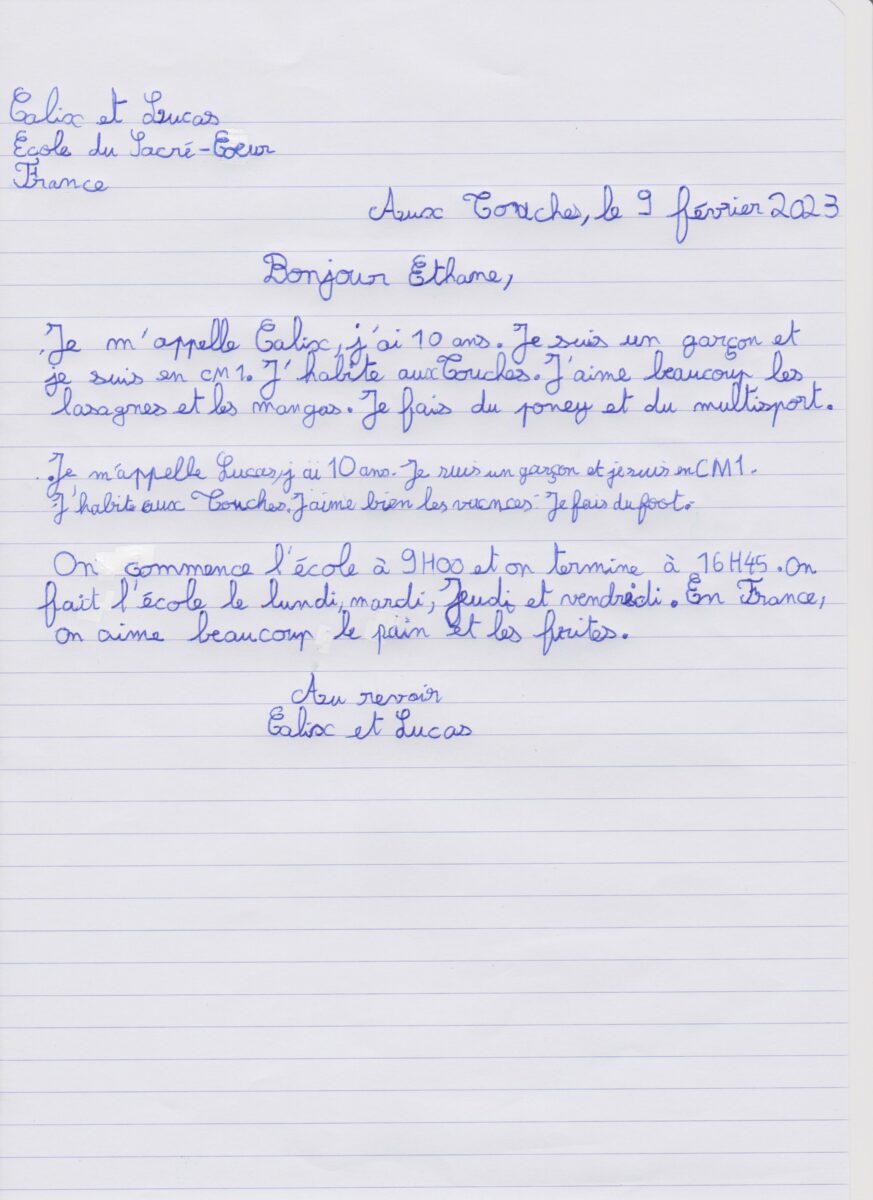 Calix et Lucas
Ecole du Sacré-Coeur
France
Aux Touches, le 9 février 2023
Bonjour Ethane,
. Je m'appelle Calix, j'ai 10 ans. Je suis un garçon et
je suis en CM1. J'habite aux Touches. J'aime beaucoup les
lasagnes et les mangas. Je fais du poney et du multisport.
. Je m'appelle Lucas, j'ai 10 ans. Je suis un garçon et je suis en CM1.
J'habite aux Touches. J'aime bien les vacances. Je fais du foot.
On commence l'école à 9H00 et on termine à 16H45. On
fait l'école le lundi, mardi, Jeudi et vendredi. En France,
on aime beaucoup le pain et les frites.
Au revoir
Calix et Lucas